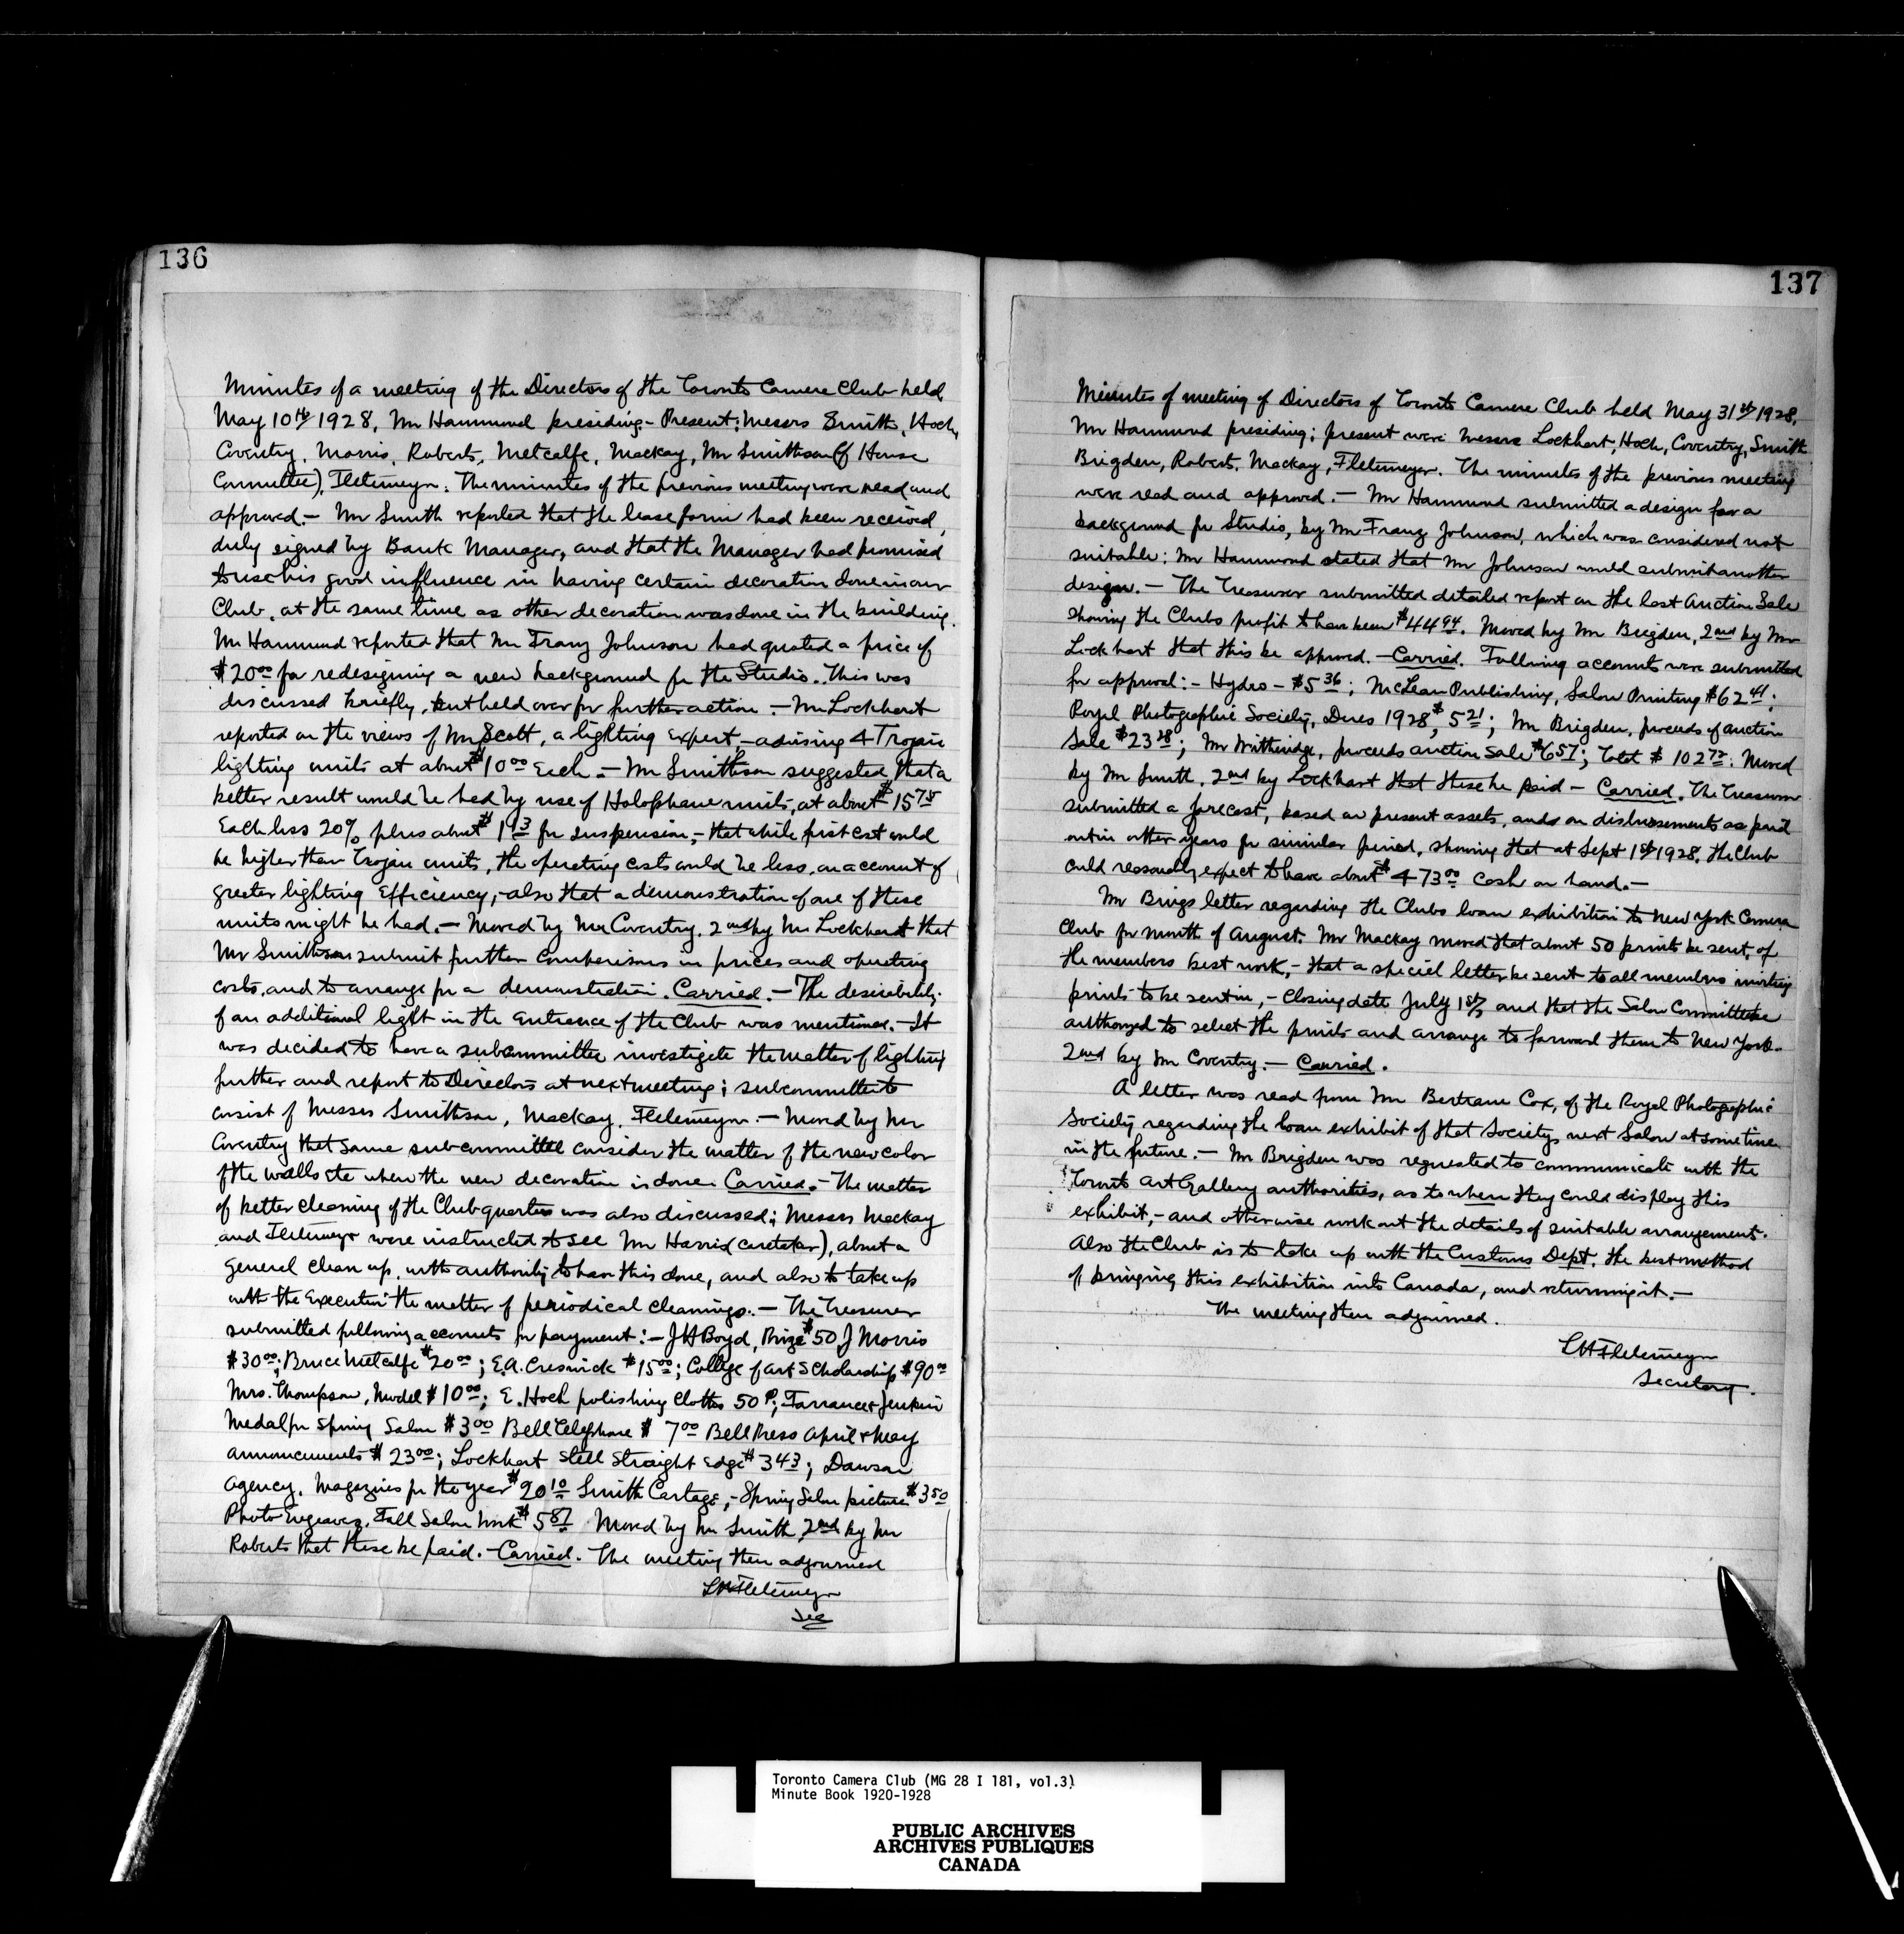 136
Minutes of a meeting of the Directors of the Toronto Camera Club held
May 10th 1928, Mr Hammond presiding - Present: Messrs Smith, Hoch,
Coventry, Morris, Roberts, Metcalfe, Mackay, Mr Smithson (of House
Committee), Fletemeyer. The minutes of the previous meeting were read and
approved. — Mr Smith reported that the lease form had been received,
duly signed by Bank Manager, and that the Manager had promised
to use his good influence in having certain decoration done in our
Club, at the same time as other decoration was done in the building.
Mr Hammond reported that Mr Franz Johnson had quoted a price of
$20.00 for redesigning a new background for the Studio. This was
discussed briefly, but held over for further action. — Mr Lockhart
reported on the views of Mr Scott, a lighting expert, — advising 4 Trojan
lighting units at about $10.00 Each. — Mr Smithson suggested that a
better result would be had by use of Holophane units, at about $15.75
Each less 20% plus about $1.13 for suspension, — that while first cost would
be higher than Trojan units, the operating costs would be less, on account of
greater lighting Efficiency, — also that a demonstration of one of these
units might be had. — Moved by Mr Coventry, 2nd by Mr Lockhart that
Mr Smithson submit further comparisons in prices and operating
costs, and to arrange for a demonstration. Carried. — The desirability
of an additional light in the Entrance of the Club was mentioned. — It
was decided to have a subcommittee investigate the matter of lighting
further and report to Directors at next meeting; subcommittee to
consist of Messrs Smithson, Mackay, Fletemeyer. — Moved by Mr
Coventry that same subcommittee consider the matter of the new color
of the walls etc when the new decoration is done. Carried. — The matter
of better cleaning of the Club quarters was also discussed; Messrs Mackay
and Fletemeyer were instructed to see Mr Harris (caretaker), about a
general clean up, with authority to have this done, and also to take up
with the Executive the matter of periodical cleanings. — The Treasurer
submitted following accounts for payment: — J H Boyd, Prize $50, J Morris
$30.00; Bruce Metcalfe $20.00; E.A. Creswick $15.00; College of Art Scholarship $90.00
Mrs. Thompson, Model $10.00; E. Hoch polishing cloths 50¢; Farrance & Jenkin
Medal for Spring Salon $3.00 Bell Telephone $7.00 Bell Press April & May
announcements $23.00; Lockhart Steel Straight Edge $3.43; Dawson
Agency, Magazines for the year $20.10 Smith Cartage, — Spring Salon pictures $3.50
Photo Engravers, Fall Salon Work $5.87 Moved by Mr Smith, 2nd by Mr
Roberts that these be paid. — Carried. The meeting then adjourned
LH Fletemeyer
Sec
137
Minutes of meeting of Directors of Toronto Camera Club held May 31st 1928,
Mr Hammond presiding; present were Messrs Lockhart, Hoch, Coventry, Smith
Brigden, Roberts, Mackay, Fletemeyer. The minutes of the previous meeting
were read and approved. — Mr Hammond submitted a design for a
background for Studio, by Mr Franz Johnson, which was considered not
suitable: Mr Hammond stated that Mr Johnson would submit another
design. — The Treasurer submitted detailed report on the last Auction Sale
showing the Clubs profit to have been $44.94. Moved by Mr Brigden, 2nd by Mr
Lockhart that this be approved. — Carried. Following accounts were submitted
for approval: — Hydro — $5.36; McLean Publishing, Salon Printing $62.41;
Royal Photographic Society, Dues 1928, $5.21; Mr Brigden, proceeds of auction
Sale $23.28; Mr , proceeds auction sale $6.57; Total $102.72. Moved
by Mr Smith, 2nd by Lockhart that these be paid — Carried. The Treasurer
submitted a forecast, based on present assets, and on disbursements as paid
out in other years for similar period, showing that at Sept 1st 1928, the Club
could reasonably expect to have about $473.00 Cash on hand. —
Mr letter regarding the Clubs loan exhibition to New York Camera
Club for month of August. Mr Mackay moved that about 50 prints be sent, of
the members best work, — that a special letter be sent to all members inviting
prints to be sent in, — closing date July 1st, and that the Salon Committee be
authorized to select the prints and arrange to forward them to New York.
2nd by Mr Coventry. — Carried.
A letter was read from Mr Bertram Cox, of the Royal Photographic
Society regarding the loan exhibit of that Societys next Salon at some time
in the future. — Mr Brigden was requested to communicate with the
Toronto Art Gallery authorities, as to when they could display this
exhibit, — and otherwise work out the details of suitable arrangement.
Also the Club is to take up with the Customs Dept. the best method
of bringing this exhibition into Canada, and returning it. —
The meeting then adjourned.
LH Fletemeyer
Secretary.
Toronto Camera Club (MG 28 I 181, vol.3)
Minute Book 1920-1928
PUBLIC ARCHIVES
ARCHIVES PUBLIQUES
CANADA